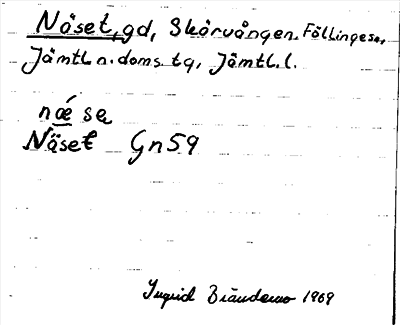 Näset, gd, Skärvången, Föllinge sn,
Jämtl. n. doms. tg, Jämtl. l.
næ´ sa
Näset Gn 59
Ingrid 1969